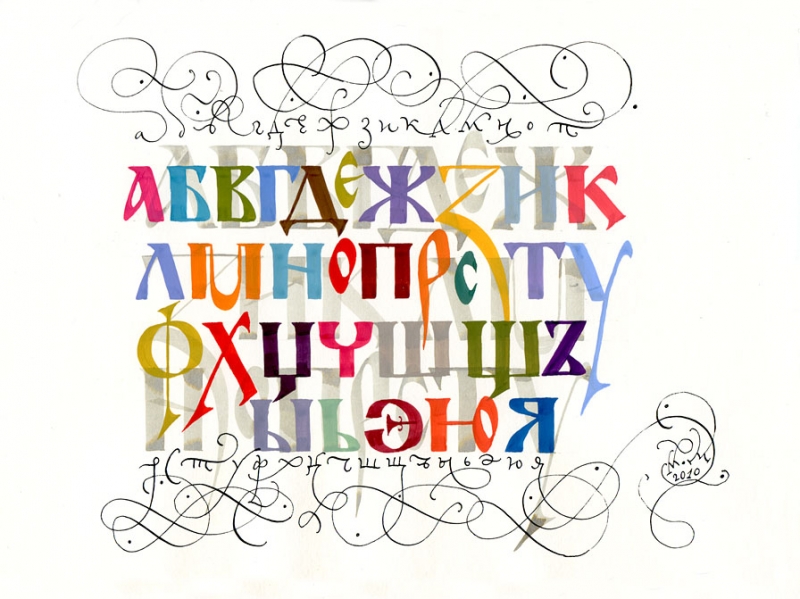 а б в г д е ж з и к л м н о п
АБВГДЕЖЗИК
ЛМНОПРСТУ
ФХЦЧШЩЪ
ЫЬЭЮЯ
р с т у ф х ц ч ш щ ъ ы ь э ю я
2010